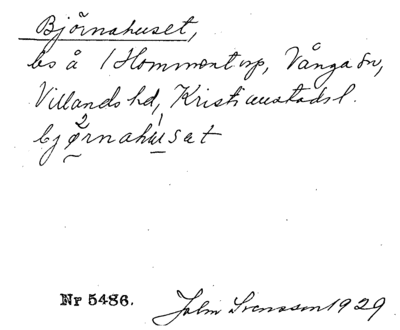 Björnahuset,
bs å 1 Hommentorp, Vånga sn,
Villands hd, Kristianstads l.
bjørnahusat
Nr 5486. John Svensson 1929